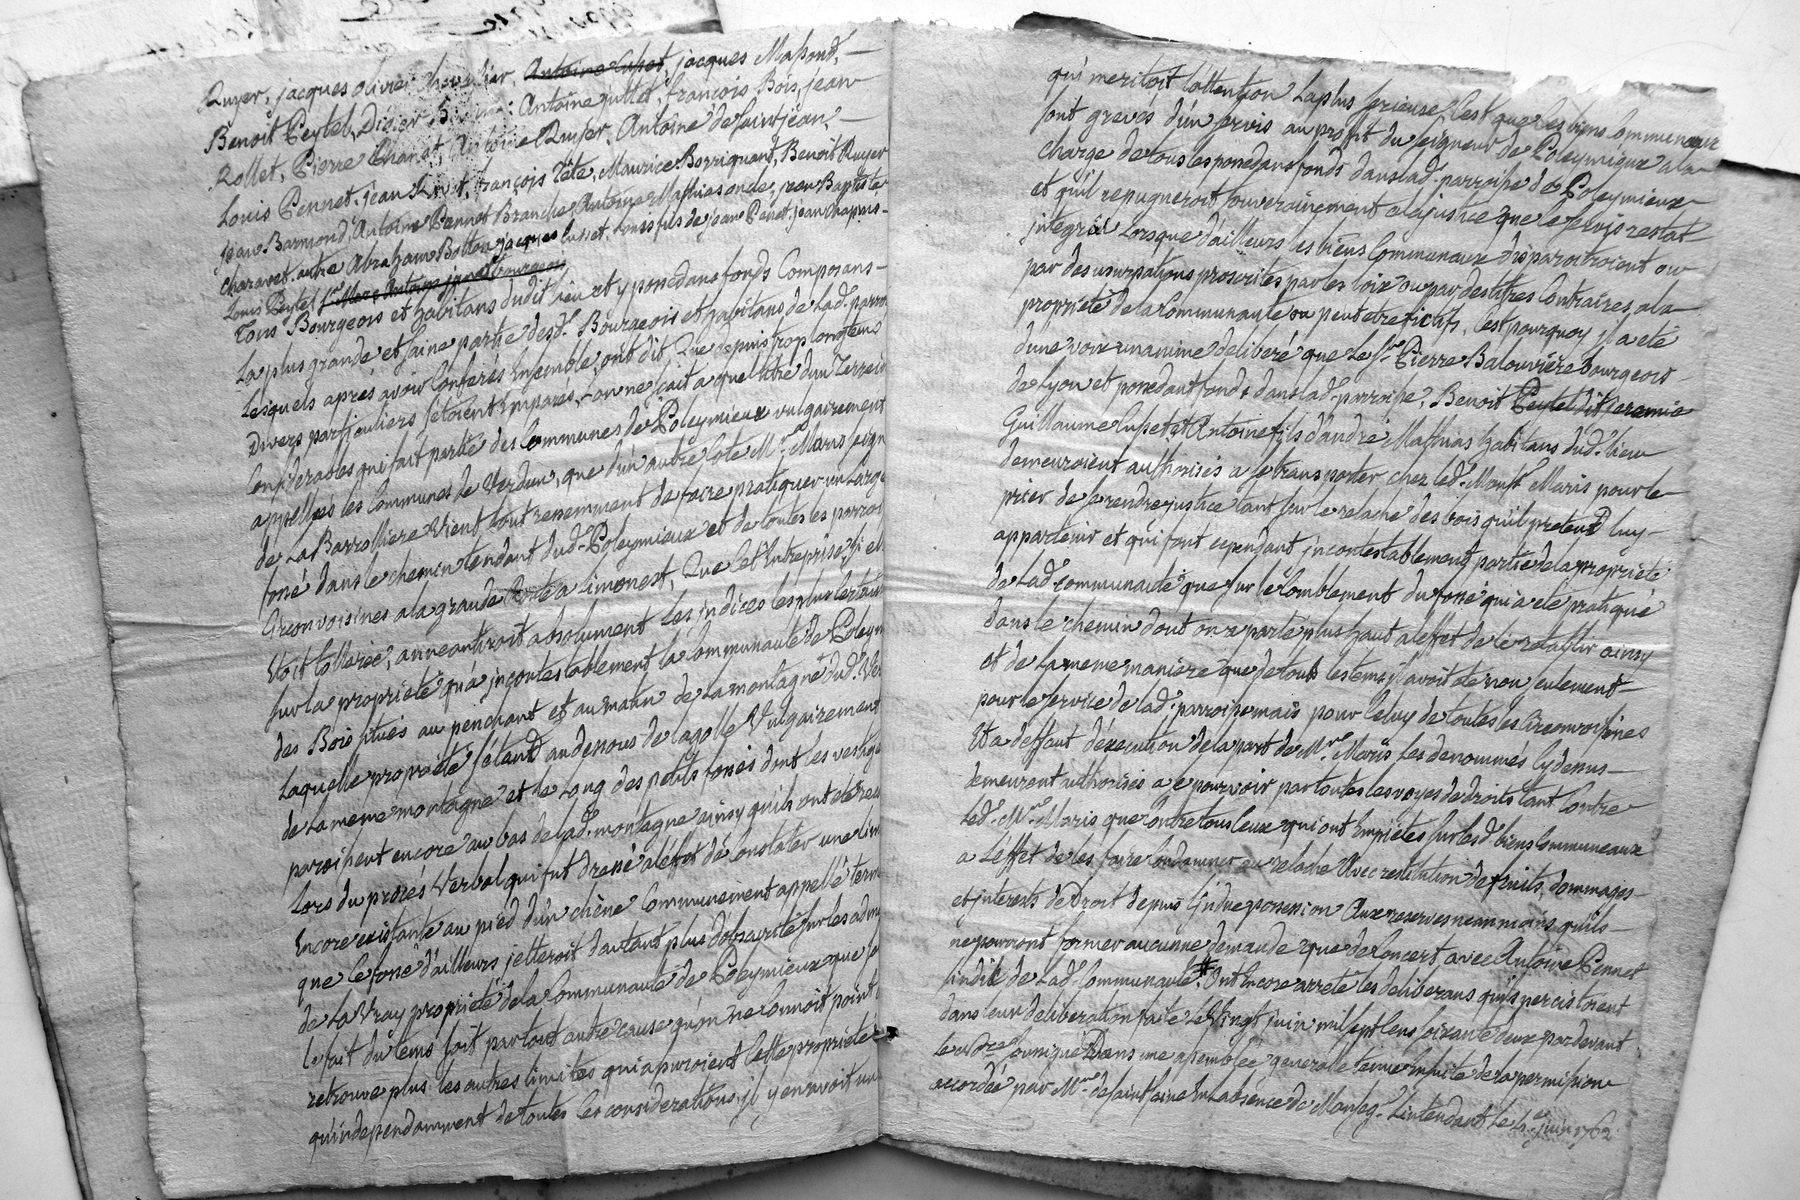 Ruyer, jacques olivier Chevalier, Antoine Lupet, jacques Massond,
Benoit Peytel, Didier Antoine juttet, françois Bois, jean
Rollet, Pierre Charvet, Antoine Ruyer, Antoine de Saint jean,
Louis Pennet, jean françois Tête, Maurice Borriquant, Benoit Ruyer
jean Barmond, Antoine Pennet Branche, Antoine Mathias oncle, jean Baptiste
Charavet, autre Abraham Bolton, jacques Lupet, Louis fils de jean Penet, jean Chapuis
Louis Peytel Sr. Marc Antoine bourgeois
Tous Bourgeois et habitans dudit lieu et y possedans fonds Composans
La plus grande et saine partie desd. Bourgeois et habitans de Lad. parro
Lesquels aprés avoir Conferés Ensemble, ont dit, Que depuis trop longtems
Divers particuliers s'etoient Emparés, on ne sçait a quel titre d'un Terrein
Considerables qui fait partie des Communes de Poleymieux vulgairement
appellées les Communes de Verdun, que d'un autre Coté Mr. Maris seign
de La Barrolliere Vient tout recemment de faire pratiquer un Large
fossé dans le chemin tendant dud. Poleymieux et de toutes les parrois
Circonvoisines a la grande Route a Limonest, Que Cet Entreprise si ell
Etoit tollerée, anneantiroit absolument Les indices les plus Certains
sur la proprieté qu'a incontestablement la Communauté de Poleym
des Bois situés au penchant et au matin de La montagne dud. Ver
Laquelle proprieté s'etend au dessous de la golle Vulgairement
de La meme montagne et le Long des petits fossés dont les vestige
paroissent encore au bas de lad. montagne ainsy qu'ils ont eté rec
Lors du procés Verbal qui fut dressé a l'effet de Constater une lim
Encore existante au pied d'un chêne Communement appellé term
que le fossé d'ailleurs jetteroit d'autant plus d'obscurité sur les
de La Vray proprieté de la Communauté de Poleymieux que
le fait du tems soit par tout autre cause qu'on ne Connoit point
retrouve plus les autres limites qui assuroient Cette proprieté
qu'independamment de toutes les considerations, il y en avoit une
qui meritoit l'attention La plus serieuse, C'est que Les biens Communeaux
sont grevés d'un servis au profit du seigneur de Poleymieux a la
charge de tous les possedans fonds dans Lad. parroisse de Poleymieux
et qu'il repugneroit souverainement a la justice que le servis restat
integral Lorsque d'ailleurs les biens Communaux disparoitroient ou
par des usurpations proscrites par les loix ou par des titres Contraires, a la
proprieté de la Communauté ou peut etre fictifs, C'est pourquoy il a eté
d'une voix unanime deliberé que Le Sr. Pierre Balouvière bourgeois
de Lyon et possedant fonds dans Lad. parroisse, Benoit Peytel dit Jeramie
Guillaume Lupet et Antoine fils d'andré Mathias habitans dud. lieu
demeuroient authorisés a se transporter chez led. Monsr. Maris pour le
prier de se rendre justice tant sur le relache des bois qu'il pretend luy
appartenir et qui font cependant incontestablement partie de la proprieté
de Lad. Communauté que sur le Comblement du fossé qui a eté pratiqué
dans le chemin dont on a parlé plus haut a l'effet de le retablir ainsy
et de La meme maniere que de touts les tems il avoit eté non seulement
pour le service de Lad. parroisse mais pour Celuy de toutes les Circonvoisines
Et a deffaut d'execution de la part de Mr. Maris les denommés Cy dessus
demeurent authorisés a se pourvoir par toutes les voyes de droits tant Contre
Led. Mr. Maris que Contre tous Ceux qui ont Empiétés sur lesd. biens Communeaux
a L'effet de les faire Condamner au relache Avec restitution de fruits, dommages
et interests de Droit depuis l'indue possession Aux reserves neanmoins qu'ils
ne pourront former aucunne demande que de Concert avec Antoine Pennet
sindic de Lad. Communauté. # Ont Encore arreté les deliberans qu'ils persistoient
dans leur deliberation faite Le Vingt juin mil sept Cens soixante deux pardevant
Le Nore. soussigné Dans une assemblée generale tenue Ensuite de la permission
accordée par Mr. de saint En L'absence de Monseg. L'intendant Le juin 1762